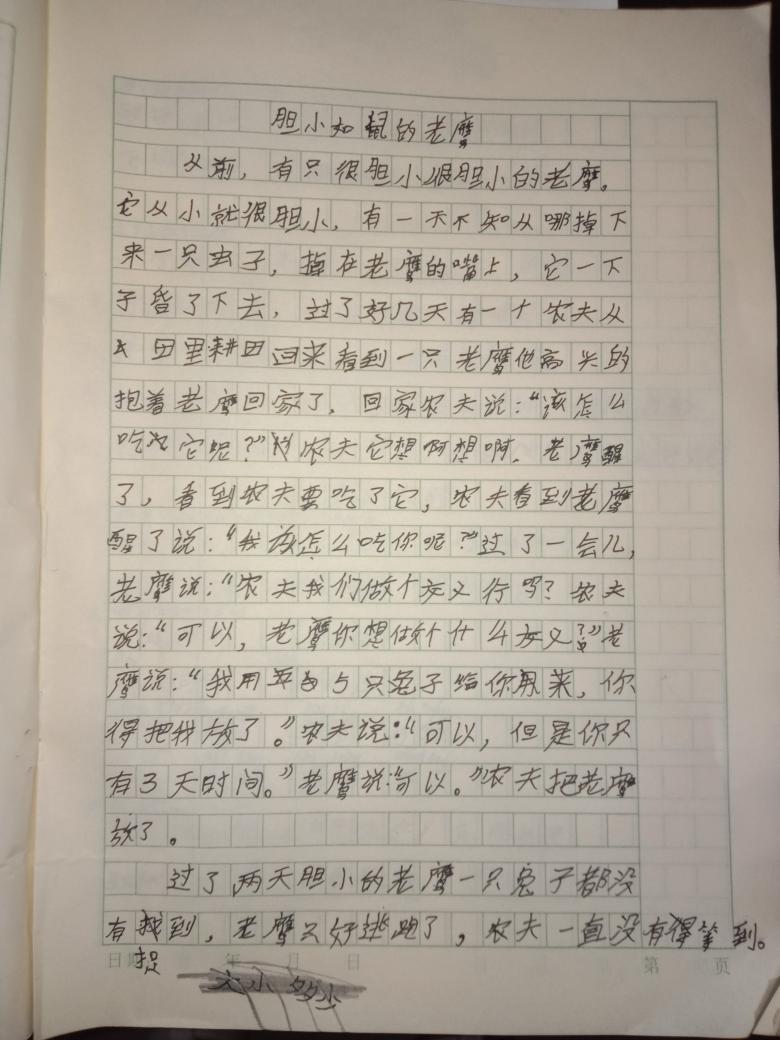 胆小如鼠的老鹰
从前，有只很胆小很胆小的老鹰。
它从小就很胆小，有一天不知从哪掉下
来一只虫子，掉在老鹰的嘴上，它一下
子昏了下去，过了好几天有一个农夫从
田里耕田回来看到一只老鹰他高兴的
抱着老鹰回家了，回家农夫说：“该怎么
吃它呢？”农夫它想啊想啊，老鹰醒
了，看到农夫要吃了它，农夫看到老鹰
醒了说：“我该怎么吃你呢？”过了一会儿，
老鹰说：“农夫我们做个交义行吗？农夫
说：“可以，老鹰你想做个什么交义？”老
鹰说：“我用5只兔子给你用来，你
得把我放了。”农夫说：“可以，但是你只
有3天时间。”老鹰说：“可以。”农夫把老鹰
放了。
过了两天胆小的老鹰一只兔子都没
有找到，老鹰只好逃跑了，农夫一直没有得等到。
捉
日期 年 月 日 第 页
大小 多少